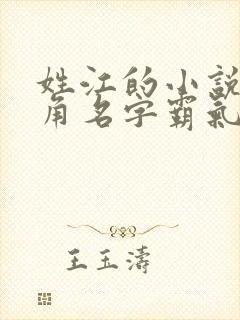 姓江的小說
角名字霸氣
王玉濤